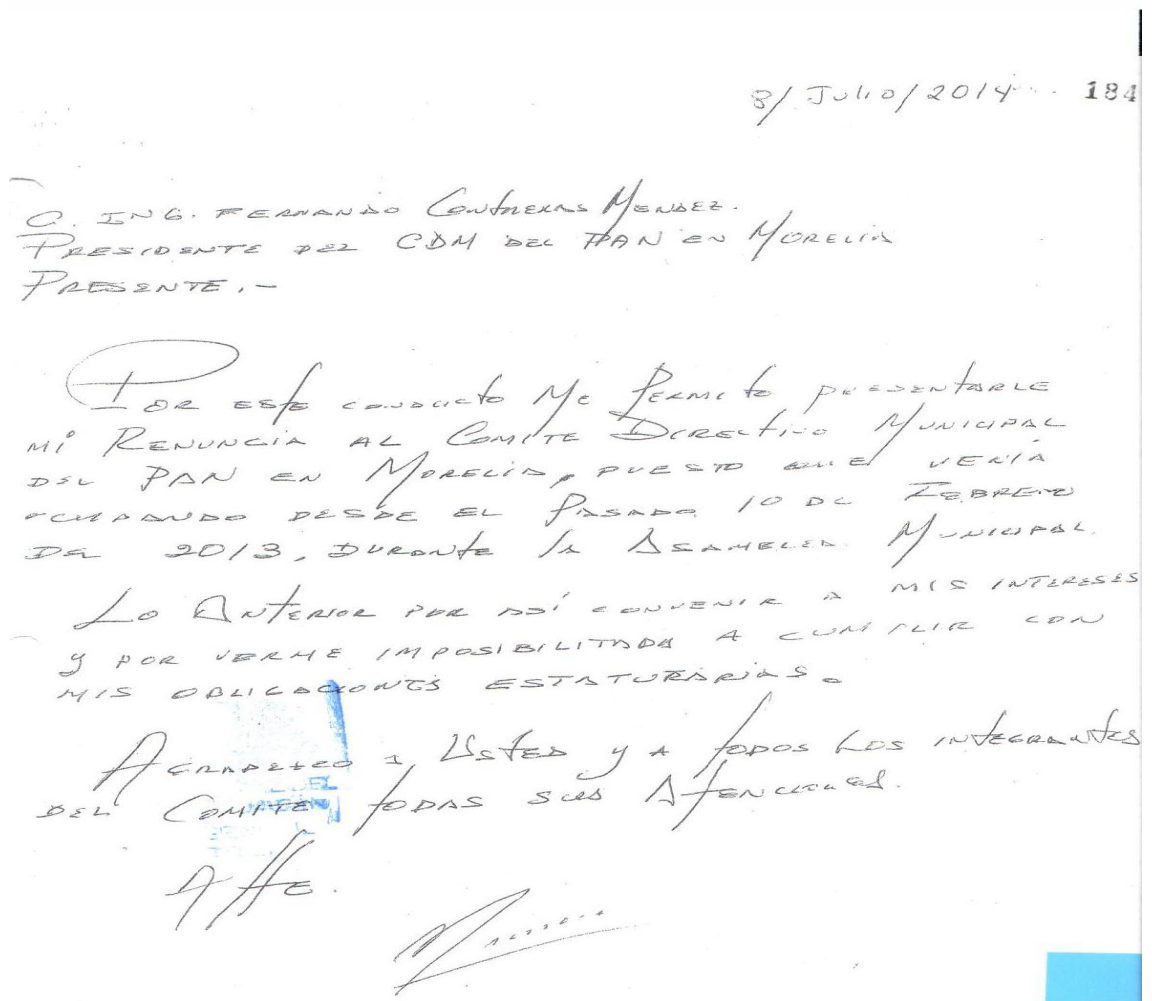 8/Julio/2014 184
C. ING. FERNANDO CONTRERAS MENDEZ.
PRESIDENTE DEL CDM DEL PAN EN MORELIA
PRESENTE.-
POR ESTE CONDUCTO ME PERMITO PRESENTARLE
MI RENUNCIA AL COMITE DIRECTIVO MUNICIPAL
DEL PAN EN MORELIA, PUESTO QUE VENIA
OCUPANDO DESDE EL PASADO 10 DE FEBRERO
DEL 2013, DURANTE LA ASAMBLEA MUNICIPAL.
LO ANTERIOR POR ASÍ CONVENIR A MIS INTERESES
Y POR VERME IMPOSIBILITADA A CUMPLIR CON
MIS OBLIGACIONES ESTATURARIAS.
AGRADEZCO A USTED Y A TODOS LOS INTEGRANTES
DEL COMITE TODAS SUS ATENCIONES.
ATTE.